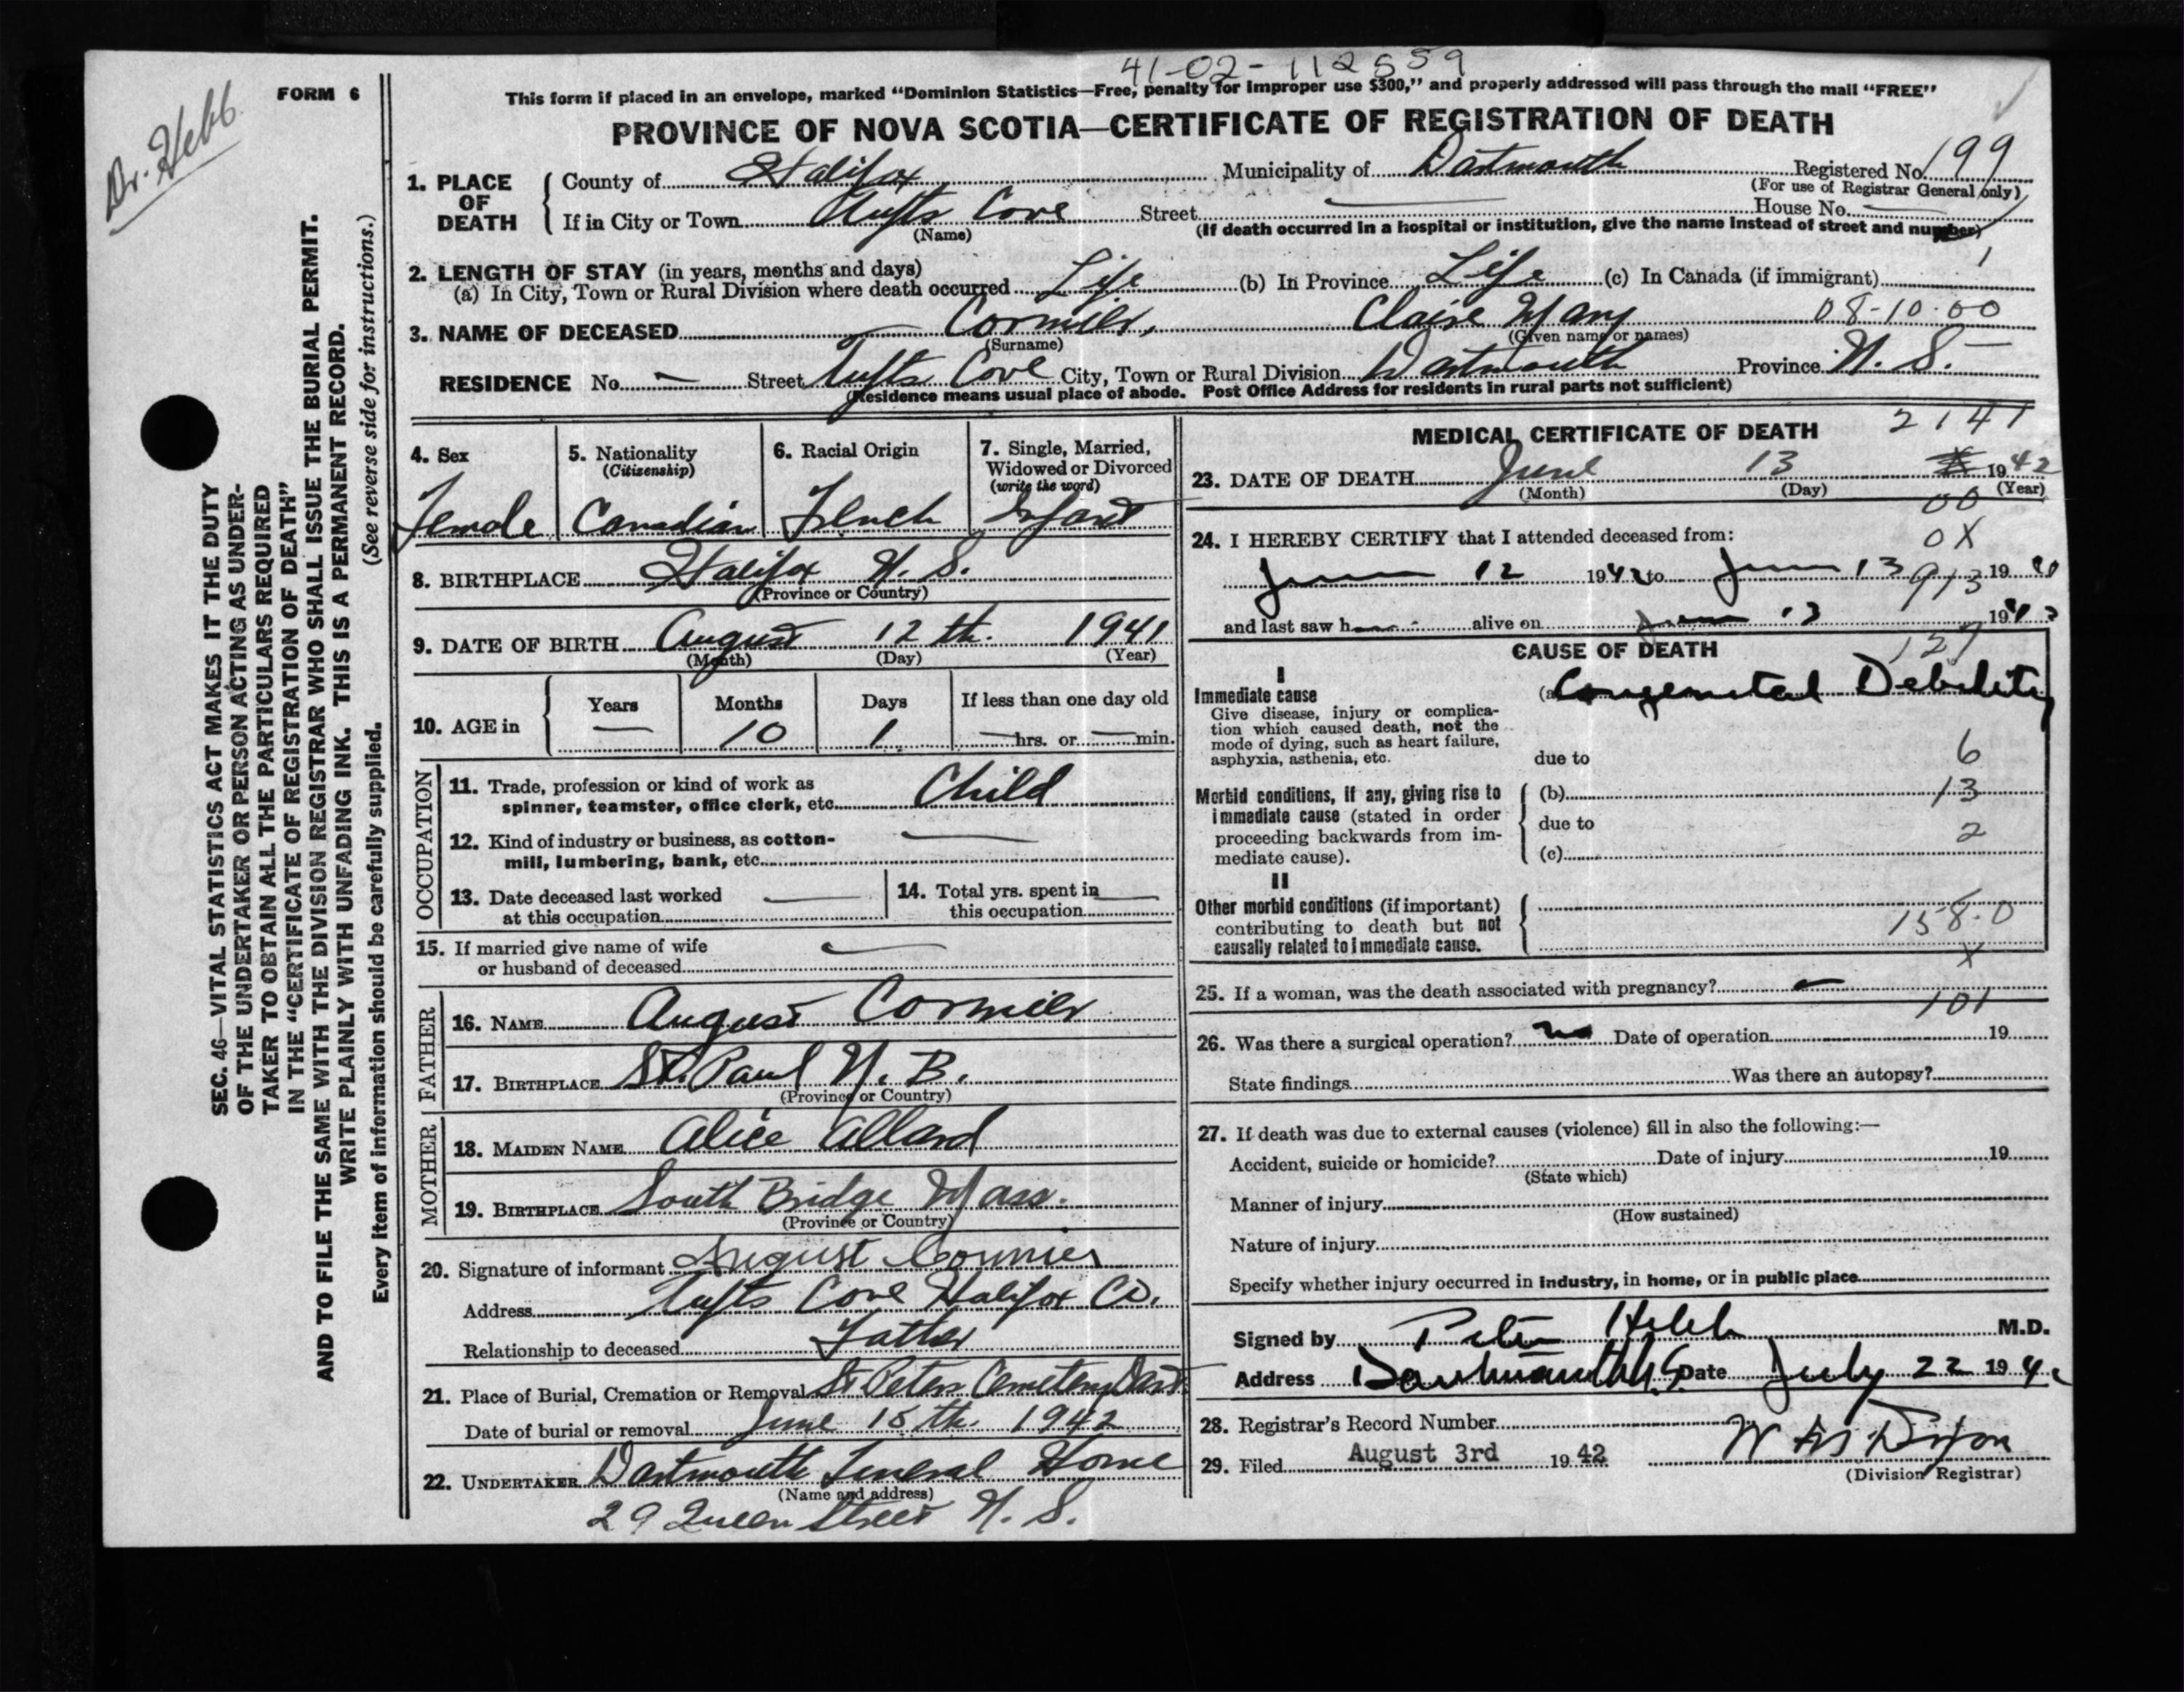 41-02-112559
Dr. Hebb
FORM 6
This form if placed in an envelope, marked “Dominion Statistics—Free, penalty for improper use $300,” and properly addressed will pass through the mail “FREE”
PROVINCE OF NOVA SCOTIA—CERTIFICATE OF REGISTRATION OF DEATH
1. PLACE OF DEATH
County of Halifax Municipality of Dartmouth Registered No. 199
(For use of Registrar General only)
If in City or Town Tufts Cove Street — House No. —
(Name) (If death occurred in a hospital or institution, give the name instead of street and number)
2. LENGTH OF STAY (in years, months and days)
(a) In City, Town or Rural Division where death occurred Life (b) In Province Life (c) In Canada (if immigrant) 1
3. NAME OF DECEASED Cormier, Claire Mary 08-10-00
(Surname) (Given name or names)
RESIDENCE No. — Street Tufts Cove City, Town or Rural Division Dartmouth Province N. S.
(Residence means usual place of abode. Post Office Address for residents in rural parts not sufficient)
SEC. 46—VITAL STATISTICS ACT MAKES IT THE DUTY
OF THE UNDERTAKER OR PERSON ACTING AS UNDER-
TAKER TO OBTAIN ALL THE PARTICULARS REQUIRED
IN THE “CERTIFICATE OF REGISTRATION OF DEATH”
AND TO FILE THE SAME WITH THE DIVISION REGISTRAR WHO SHALL ISSUE THE BURIAL PERMIT.
WRITE PLAINLY WITH UNFADING INK. THIS IS A PERMANENT RECORD.
Every item of information should be carefully supplied. (See reverse side for instructions.)
4. Sex 5. Nationality (Citizenship) 6. Racial Origin 7. Single, Married, Widowed or Divorced (write the word)
Female Canadian French Infant
8. BIRTHPLACE Halifax N. S.
(Province or Country)
9. DATE OF BIRTH August 12 th. 1941
(Month) (Day) (Year)
10. AGE in Years Months Days If less than one day old
— 10 1 — hrs. or — min.
OCCUPATION
11. Trade, profession or kind of work as
spinner, teamster, office clerk, etc. Child
12. Kind of industry or business, as cotton-
mill, lumbering, bank, etc. —
13. Date deceased last worked at this occupation —
14. Total yrs. spent in this occupation —
15. If married give name of wife
or husband of deceased —
FATHER
16. NAME August Cormier
17. BIRTHPLACE St. Paul N. B.
(Province or Country)
MOTHER
18. MAIDEN NAME Alice Allard
19. BIRTHPLACE South Bridge Mass.
(Province or Country)
20. Signature of informant August Cormier
Address Tufts Cove Halifax Co.
Relationship to deceased Father
21. Place of Burial, Cremation or Removal St. Peters Cemetery Dart.
Date of burial or removal June 15 th. 1942
22. UNDERTAKER Dartmouth Funeral Home
(Name and address)
29 Queen Street N. S.
MEDICAL CERTIFICATE OF DEATH 2141
23. DATE OF DEATH June 13 1942
(Month) (Day) (Year)
00
24. I HEREBY CERTIFY that I attended deceased from: 0X
June 12 1942 to June 13 19
913
and last saw h alive on June 13 194
127
CAUSE OF DEATH
I
Immediate cause (a) Congenital Debility
Give disease, injury or complica-
tion which caused death, not the
mode of dying, such as heart failure,
asphyxia, asthenia, etc. due to 6
Morbid conditions, if any, giving rise to (b) 13
immediate cause (stated in order due to
proceeding backwards from im- 2
mediate cause). (c)
II
Other morbid conditions (if important)
contributing to death but not 158.0
causally related to immediate cause.
X
25. If a woman, was the death associated with pregnancy? —
101
26. Was there a surgical operation? no Date of operation 19
State findings Was there an autopsy?
27. If death was due to external causes (violence) fill in also the following:—
Accident, suicide or homicide? Date of injury 19
(State which)
Manner of injury
(How sustained)
Nature of injury
Specify whether injury occurred in industry, in home, or in public place
Signed by Peter Hebb M.D.
Address Dartmouth N.S. Date July 22 194
28. Registrar's Record Number
29. Filed August 3rd 19 42
(Division Registrar)